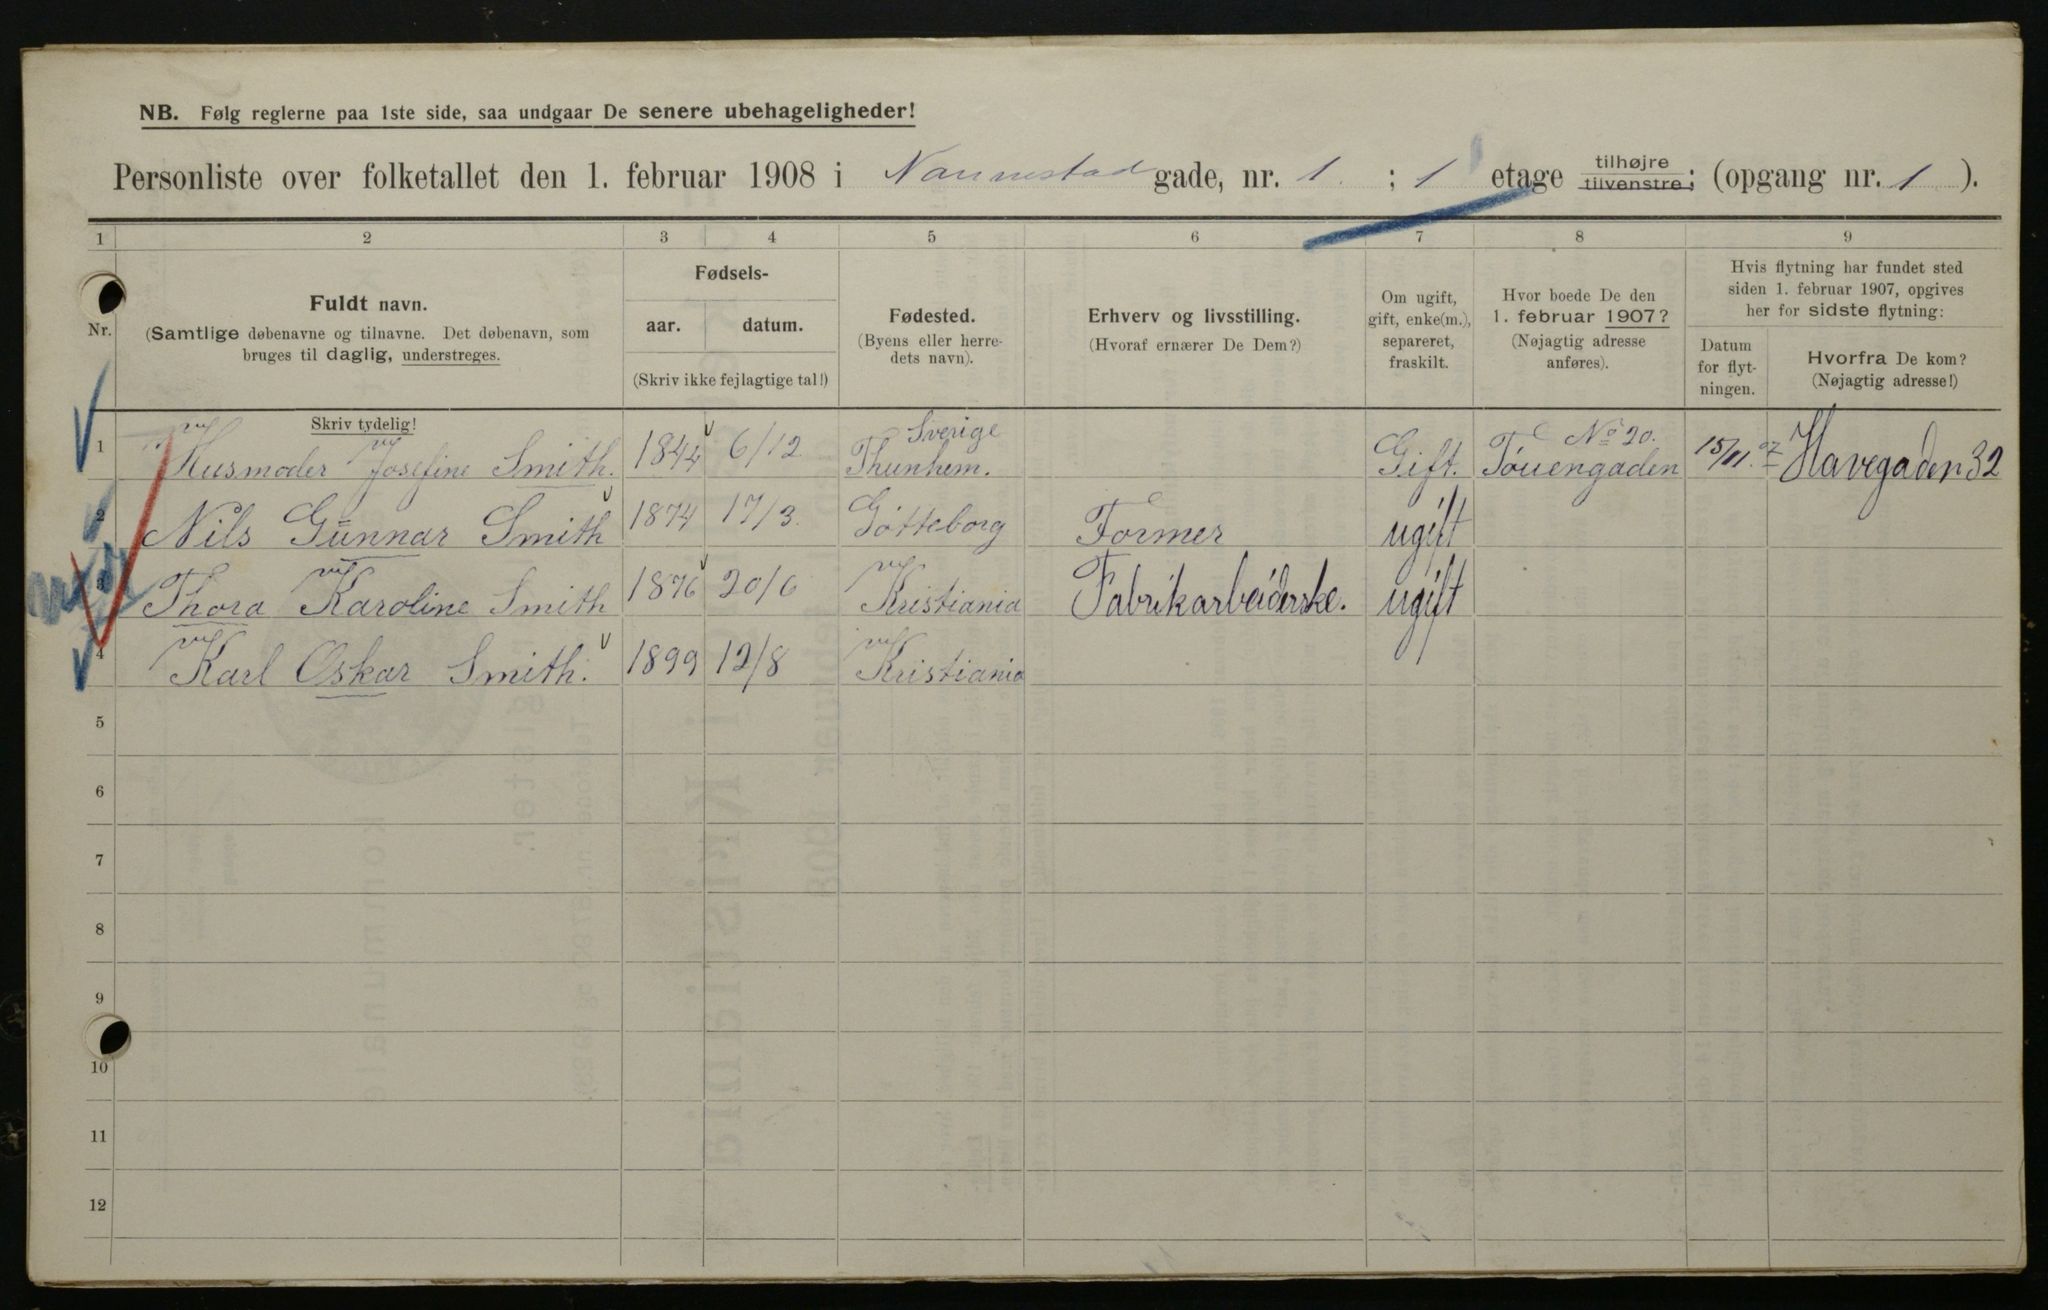 NB. Følg reglerne paa 1ste side, saa undgaar De senere ubehageligheder!
Personliste over folketallet den 1. februar 1908 i Nannestad gade, nr. 1 ; 1 etage tilhøjre tilvenstre; (opgang nr. 1 ).
1 2 3 4 5 6 7 8 9
Nr.
Fuldt navn.
(Samtlige døbenavne og tilnavne. Det døbenavn, som
bruges til daglig, understreges.
Fødsels-
aar. datum.
(Skriv ikke fejlagtige tal!)
Fødested.
(Byens eller herre-
dets navn).
Erhverv og livsstilling.
(Hvoraf ernærer De Dem?)
Om ugift,
gift, enke(m.),
separeret,
fraskilt.
Hvor boede De den
1. februar 1907?
(Nøjagtig adresse
anføres).
Hvis flytning har fundet sted
siden 1. februar 1907, opgives
her for sidste flytning:
Datum
for flyt-
ningen.
Hvorfra De kom?
(Nøjagtig adresse!)
Skriv tydelig!
Sverige
No 20.
1 Husmoder Josefine Smith. 1844 6/12 Thunhem. Gift. Töuengaden 15/11. 07 Havegaden 32
2 Nils Gunnar Smith 1874 17/3. Götteborg Former ugift
3 Thora Karoline Smith 1876 20/6 Kristiania Fabrikarbeiderske. ugift
4 Karl Oskar Smith. 1899 12/8 Kristiania
5
6
7
8
9
10
11
12